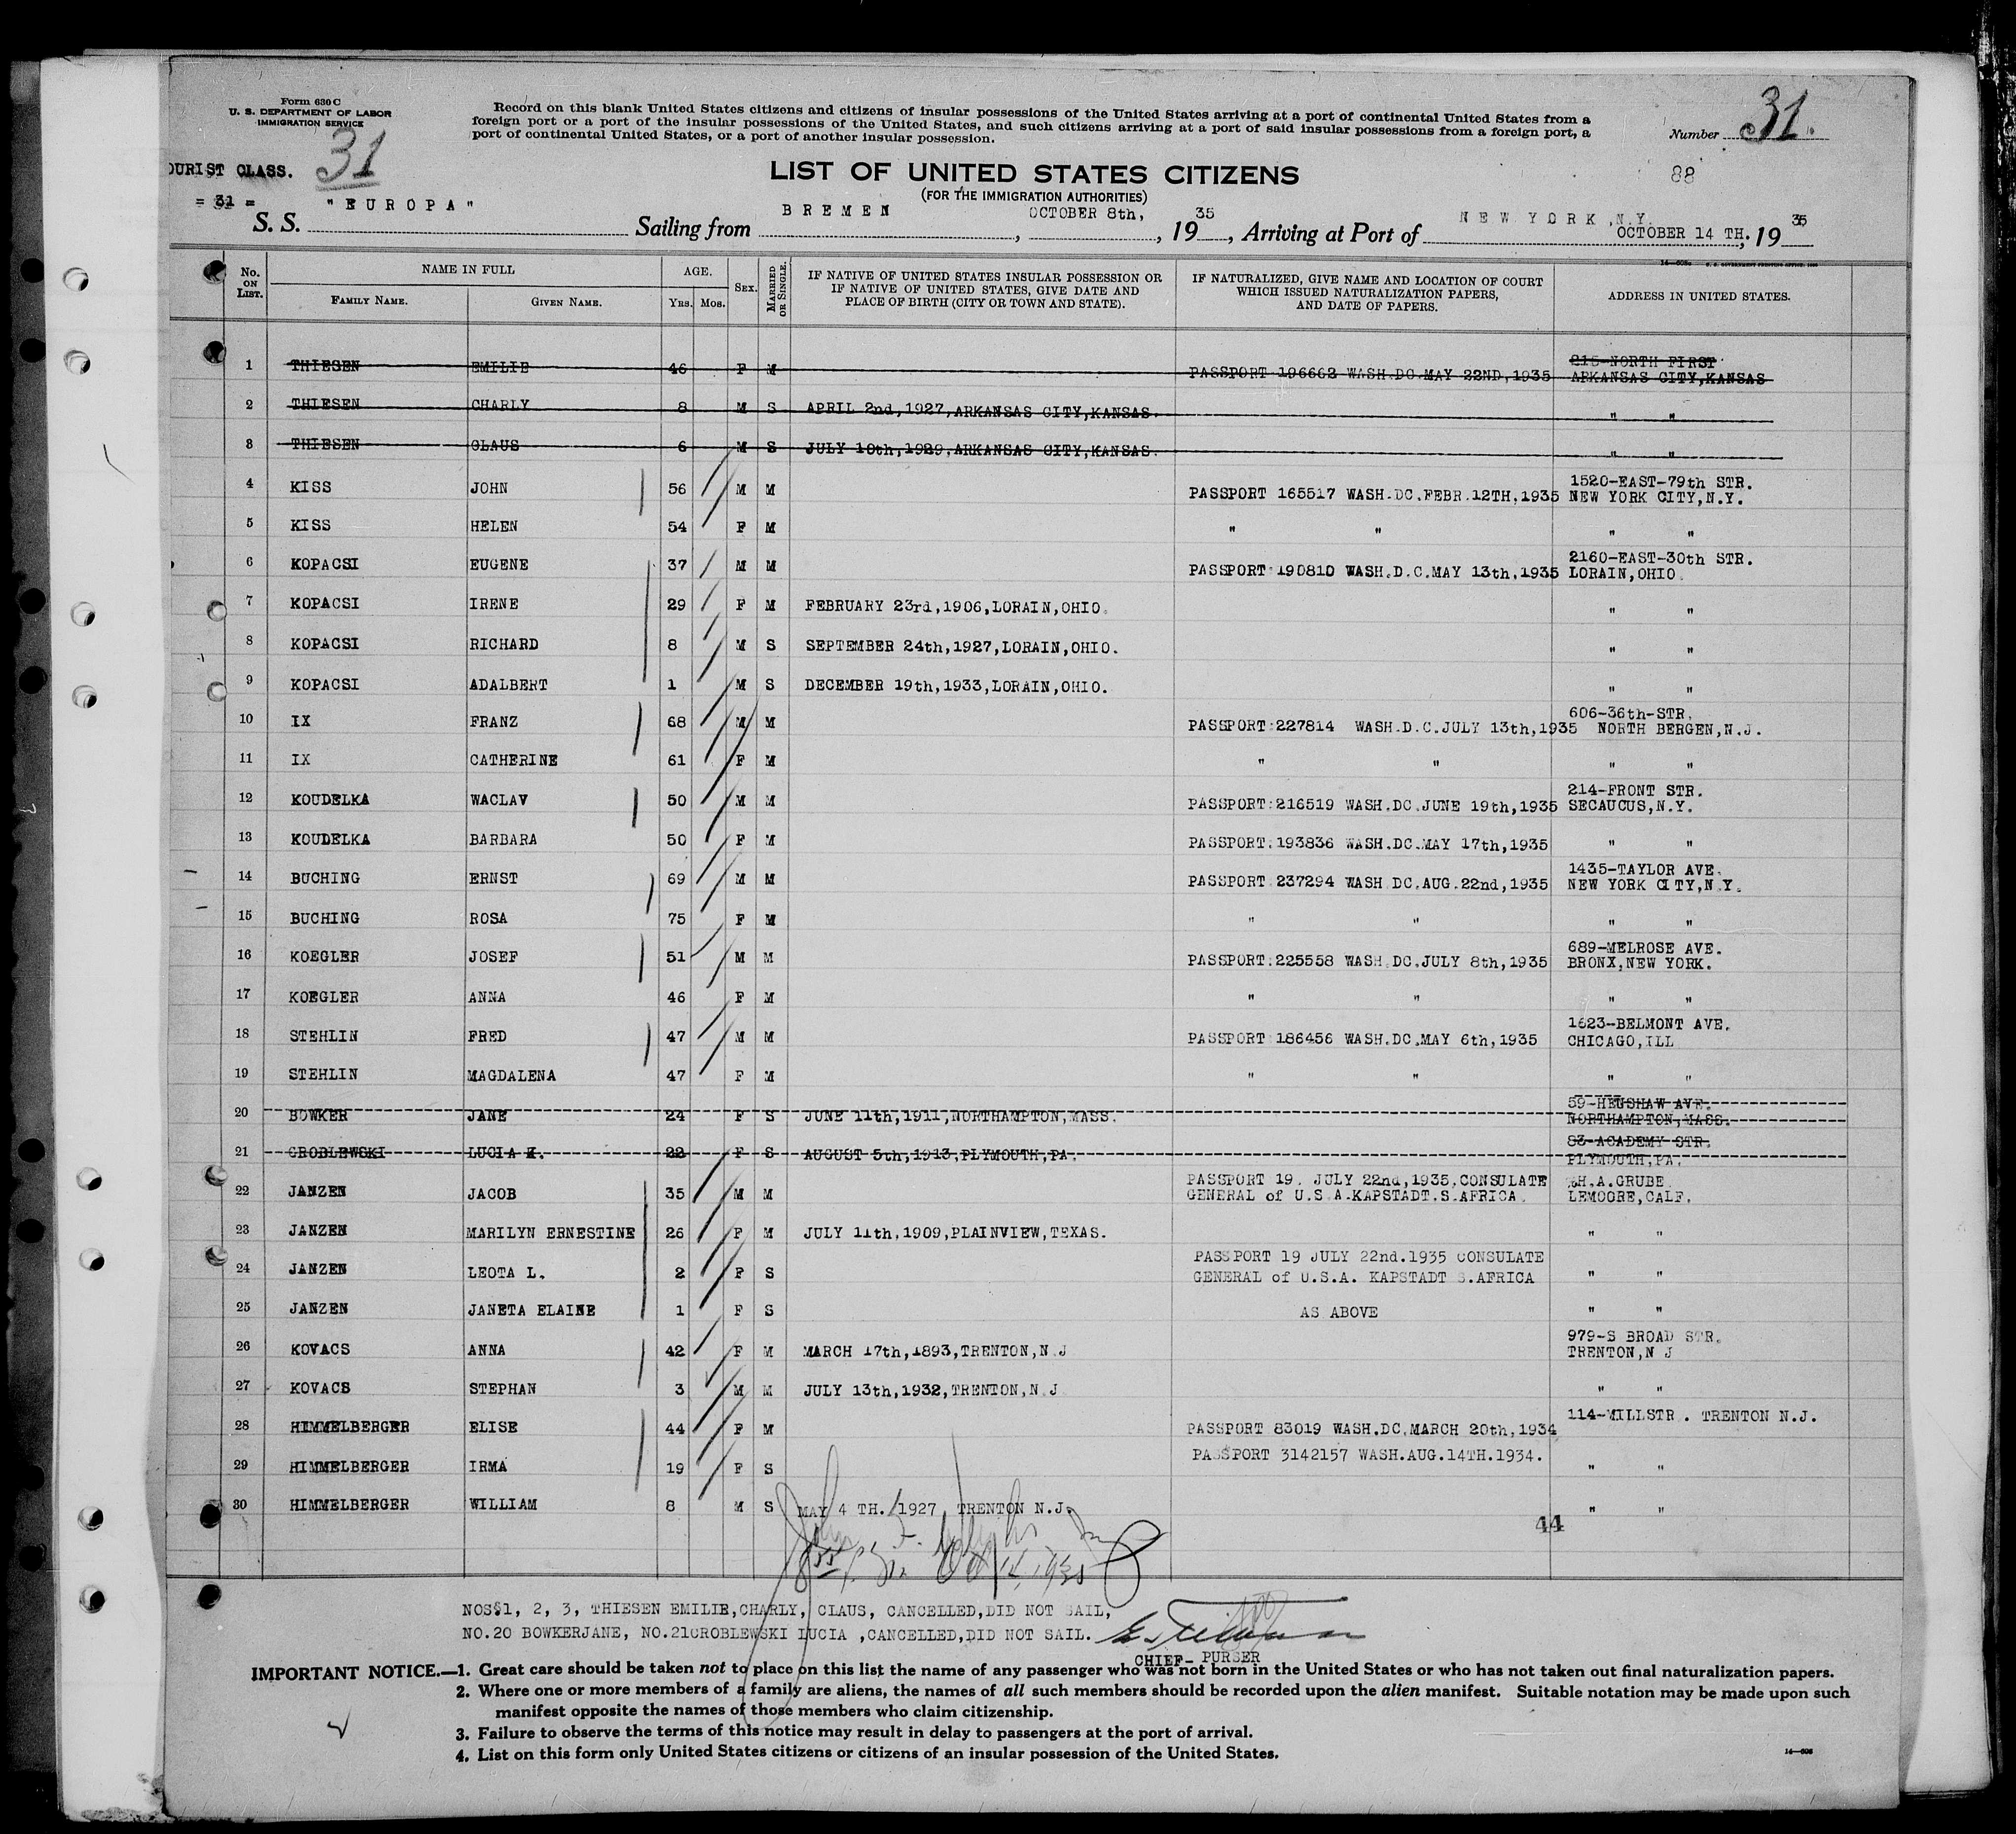 Form 630 C
U. S. DEPARTMENT OF LABOR
IMMIGRATION SERVICE
Record on this blank United States citizens and citizens of insular possessions of the United States arriving at a port of continental United States from a
foreign port or a port of the insular possessions of the United States, and such citizens arriving at a port of said insular possessions from a foreign port, a
port of continental United States, or a port of another insular possession.
Number 31.
31
OURIST CLASS.
LIST OF UNITED STATES CITIZENS
88
(FOR THE IMMIGRATION AUTHORITIES)
= 31 =
S. S. "EUROPA" Sailing from BREMEN, OCTOBER 8th, 1935, Arriving at Port of NEW YORK, N.Y. OCTOBER 14 TH, 1935
No. ON LIST. NAME IN FULL FAMILY NAME. GIVEN NAME. AGE. Yrs. Mos. SEX. MARRIED OR SINGLE. IF NATIVE OF UNITED STATES INSULAR POSSESSION OR IF NATIVE OF UNITED STATES, GIVE DATE AND PLACE OF BIRTH (CITY OR TOWN AND STATE). IF NATURALIZED, GIVE NAME AND LOCATION OF COURT WHICH ISSUED NATURALIZATION PAPERS, AND DATE OF PAPERS. ADDRESS IN UNITED STATES.
1 THIESEN EMILIE 46 F M PASSPORT 196662 WASH.DC.MAY 22ND,1935 215-NORTH FIRST ARKANSAS CITY,KANSAS
2 THIESEN CHARLY 8 M S APRIL 2nd,1927,ARKANSAS CITY,KANSAS. " "
3 THIESEN CLAUS 6 M S JULY 10th,1929,ARKANSAS CITY,KANSAS. " "
4 KISS JOHN 56 M M PASSPORT 165517 WASH.DC.FEBR.12TH,1935 1520-EAST-79th STR. NEW YORK CITY,N.Y.
5 KISS HELEN 54 F M " " " "
6 KOPACSI EUGENE 37 M M PASSPORT 190810 WASH.D.C.MAY 13th,1935 2160-EAST-30th STR. LORAIN,OHIO.
7 KOPACSI IRENE 29 F M FEBRUARY 23rd,1906,LORAIN,OHIO. " "
8 KOPACSI RICHARD 8 M S SEPTEMBER 24th,1927,LORAIN,OHIO. " "
9 KOPACSI ADALBERT 1 M S DECEMBER 19th,1933,LORAIN,OHIO. " "
10 IX FRANZ 68 M M PASSPORT 227814 WASH.D.C.JULY 13th,1935 606-36th-STR. NORTH BERGEN,N.J.
11 IX CATHERINE 61 F M " " " "
12 KOUDELKA WACLAV 50 M M PASSPORT 216519 WASH.DC.JUNE 19th,1935 214-FRONT STR. SECAUCUS,N.Y.
13 KOUDELKA BARBARA 50 F M PASSPORT 193836 WASH.DC.MAY 17th,1935 " "
14 BUCHING ERNST 69 M M PASSPORT 237294 WASH DC.AUG.22nd,1935 1435-TAYLOR AVE. NEW YORK CITY,N.Y.
15 BUCHING ROSA 75 F M " " " "
16 KOEGLER JOSEF 51 M M PASSPORT 225558 WASH.DC.JULY 8th,1935 689-MELROSE AVE. BRONX,NEW YORK.
17 KOEGLER ANNA 46 F M " " " "
18 STEHLIN FRED 47 M M PASSPORT 186456 WASH.DC.MAY 6th,1935 1623-BELMONT AVE. CHICAGO,ILL
19 STEHLIN MAGDALENA 47 F M " " " "
20 BOWKER JANE 24 F S JUNE 11th,1911,NORTHAMPTON,MASS. 59-HENSHAW AVE. NORTHAMPTON,MASS.
21 GROBLEWSKI LUCIA 22 F S AUGUST 5th,1913,PLYMOUTH,PA. 83-ACADEMY STR. PLYMOUTH,PA.
22 JANZEN JACOB 35 M M PASSPORT 19. JULY 22nd,1935,CONSULATE GENERAL of U.S.A.KAPSTADT.S.AFRICA. %H.A.GRUBE LEMOORE,CALF.
23 JANZEN MARILYN ERNESTINE 26 F M JULY 11th,1909,PLAINVIEW,TEXAS. " "
24 JANZEN LEOTA L. 2 F S PASSPORT 19 JULY 22nd.1935 CONSULATE GENERAL of U.S.A. KAPSTADT S.AFRICA " "
25 JANZEN JANETA ELAINE 1 F S AS ABOVE " "
26 KOVACS ANNA 42 F M MARCH 17th,1893,TRENTON,N.J 979-S BROAD STR. TRENTON,N J
27 KOVACS STEPHAN 3 M M JULY 13th,1932,TRENTON,N.J " "
28 HIMMELBERGER ELISE 44 F M PASSPORT 83019 WASH.DC.MARCH 20th,1934 114-MILLSTR. TRENTON N.J.
29 HIMMELBERGER IRMA 19 F S PASSPORT 3142157 WASH.AUG.14TH.1934. " "
30 HIMMELBERGER WILLIAM 8 M S MAY 4 TH. 1927 TRENTON N.J. " "
44
Oct 14, 1935
NOS§1, 2, 3, THIESEN EMILIE,CHARLY, CLAUS, CANCELLED,DID NOT SAIL,
NO.20 BOWKERJANE, NO.21GROBLEWSKI LUCIA ,CANCELLED,DID NOT SAIL.
CHIEF- PURSER
IMPORTANT NOTICE.—1. Great care should be taken not to place on this list the name of any passenger who was not born in the United States or who has not taken out final naturalization papers.
2. Where one or more members of a family are aliens, the names of all such members should be recorded upon the alien manifest. Suitable notation may be made upon such
manifest opposite the names of those members who claim citizenship.
3. Failure to observe the terms of this notice may result in delay to passengers at the port of arrival.
4. List on this form only United States citizens or citizens of an insular possession of the United States.